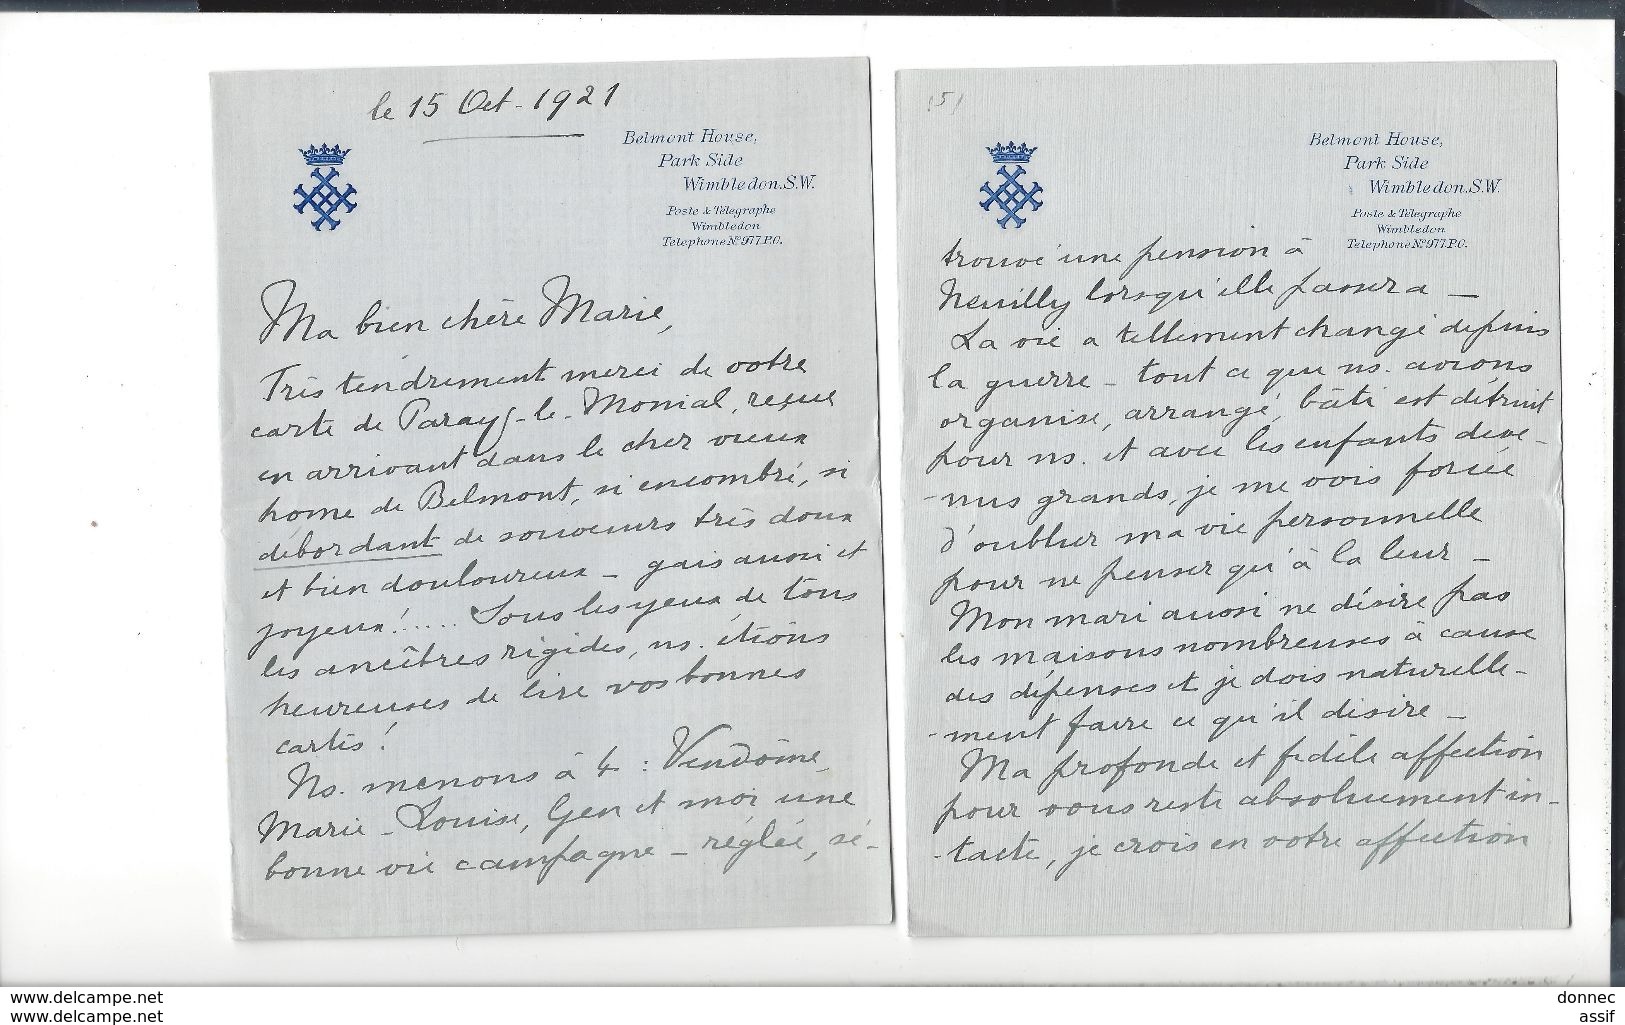 le 15 Oct - 1921
Belmont House,
Park Side
Wimbledon. S.W.
Poste & Télegraphe
Wimbledon
Telephone No 977. P.C.
Ma bien chère Marie,
Très tendrement merci de votre
carte de Paray-le-Monial, reçue
en arrivant dans le cher vieux
home de Belmont, si encombré, si
débordant de souvenirs très doux
et bien douloureux - gais aussi et
joyeux!..... Sous les yeux de tous
les ancêtres rigides, ns. étions
heureuses de lire vos bonnes
cartes!
Ns. menons à 4 : Vendôme,
Marie-Louise, Gen et moi une
bonne vie campagne - réglée, sé-
(5)
Belmont House,
Park Side
Wimbledon. S.W.
Poste & Télegraphe
Wimbledon
Telephone No 977. P.C.
trouvé une pension à
Neuilly lorsqu'elle passera -
La vie a tellement changé depuis
la guerre - tout ce que ns. avions
organisé, arrangé, bâti est détruit
pour ns. et avec les enfants deve-
-nus grands, je me vois forcée
d'oublier ma vie personnelle
pour ne penser qu'à la leur -
Mon mari aussi ne désire pas
les maisons nombreuses à cause
des dépenses et je dois naturelle-
-ment faire ce qu'il désire -
Ma profonde et fidèle affection
pour vous reste absolument in-
-tacte, je crois en votre affection
www.delcampe.net
www.delcampe.com
donnec
assif